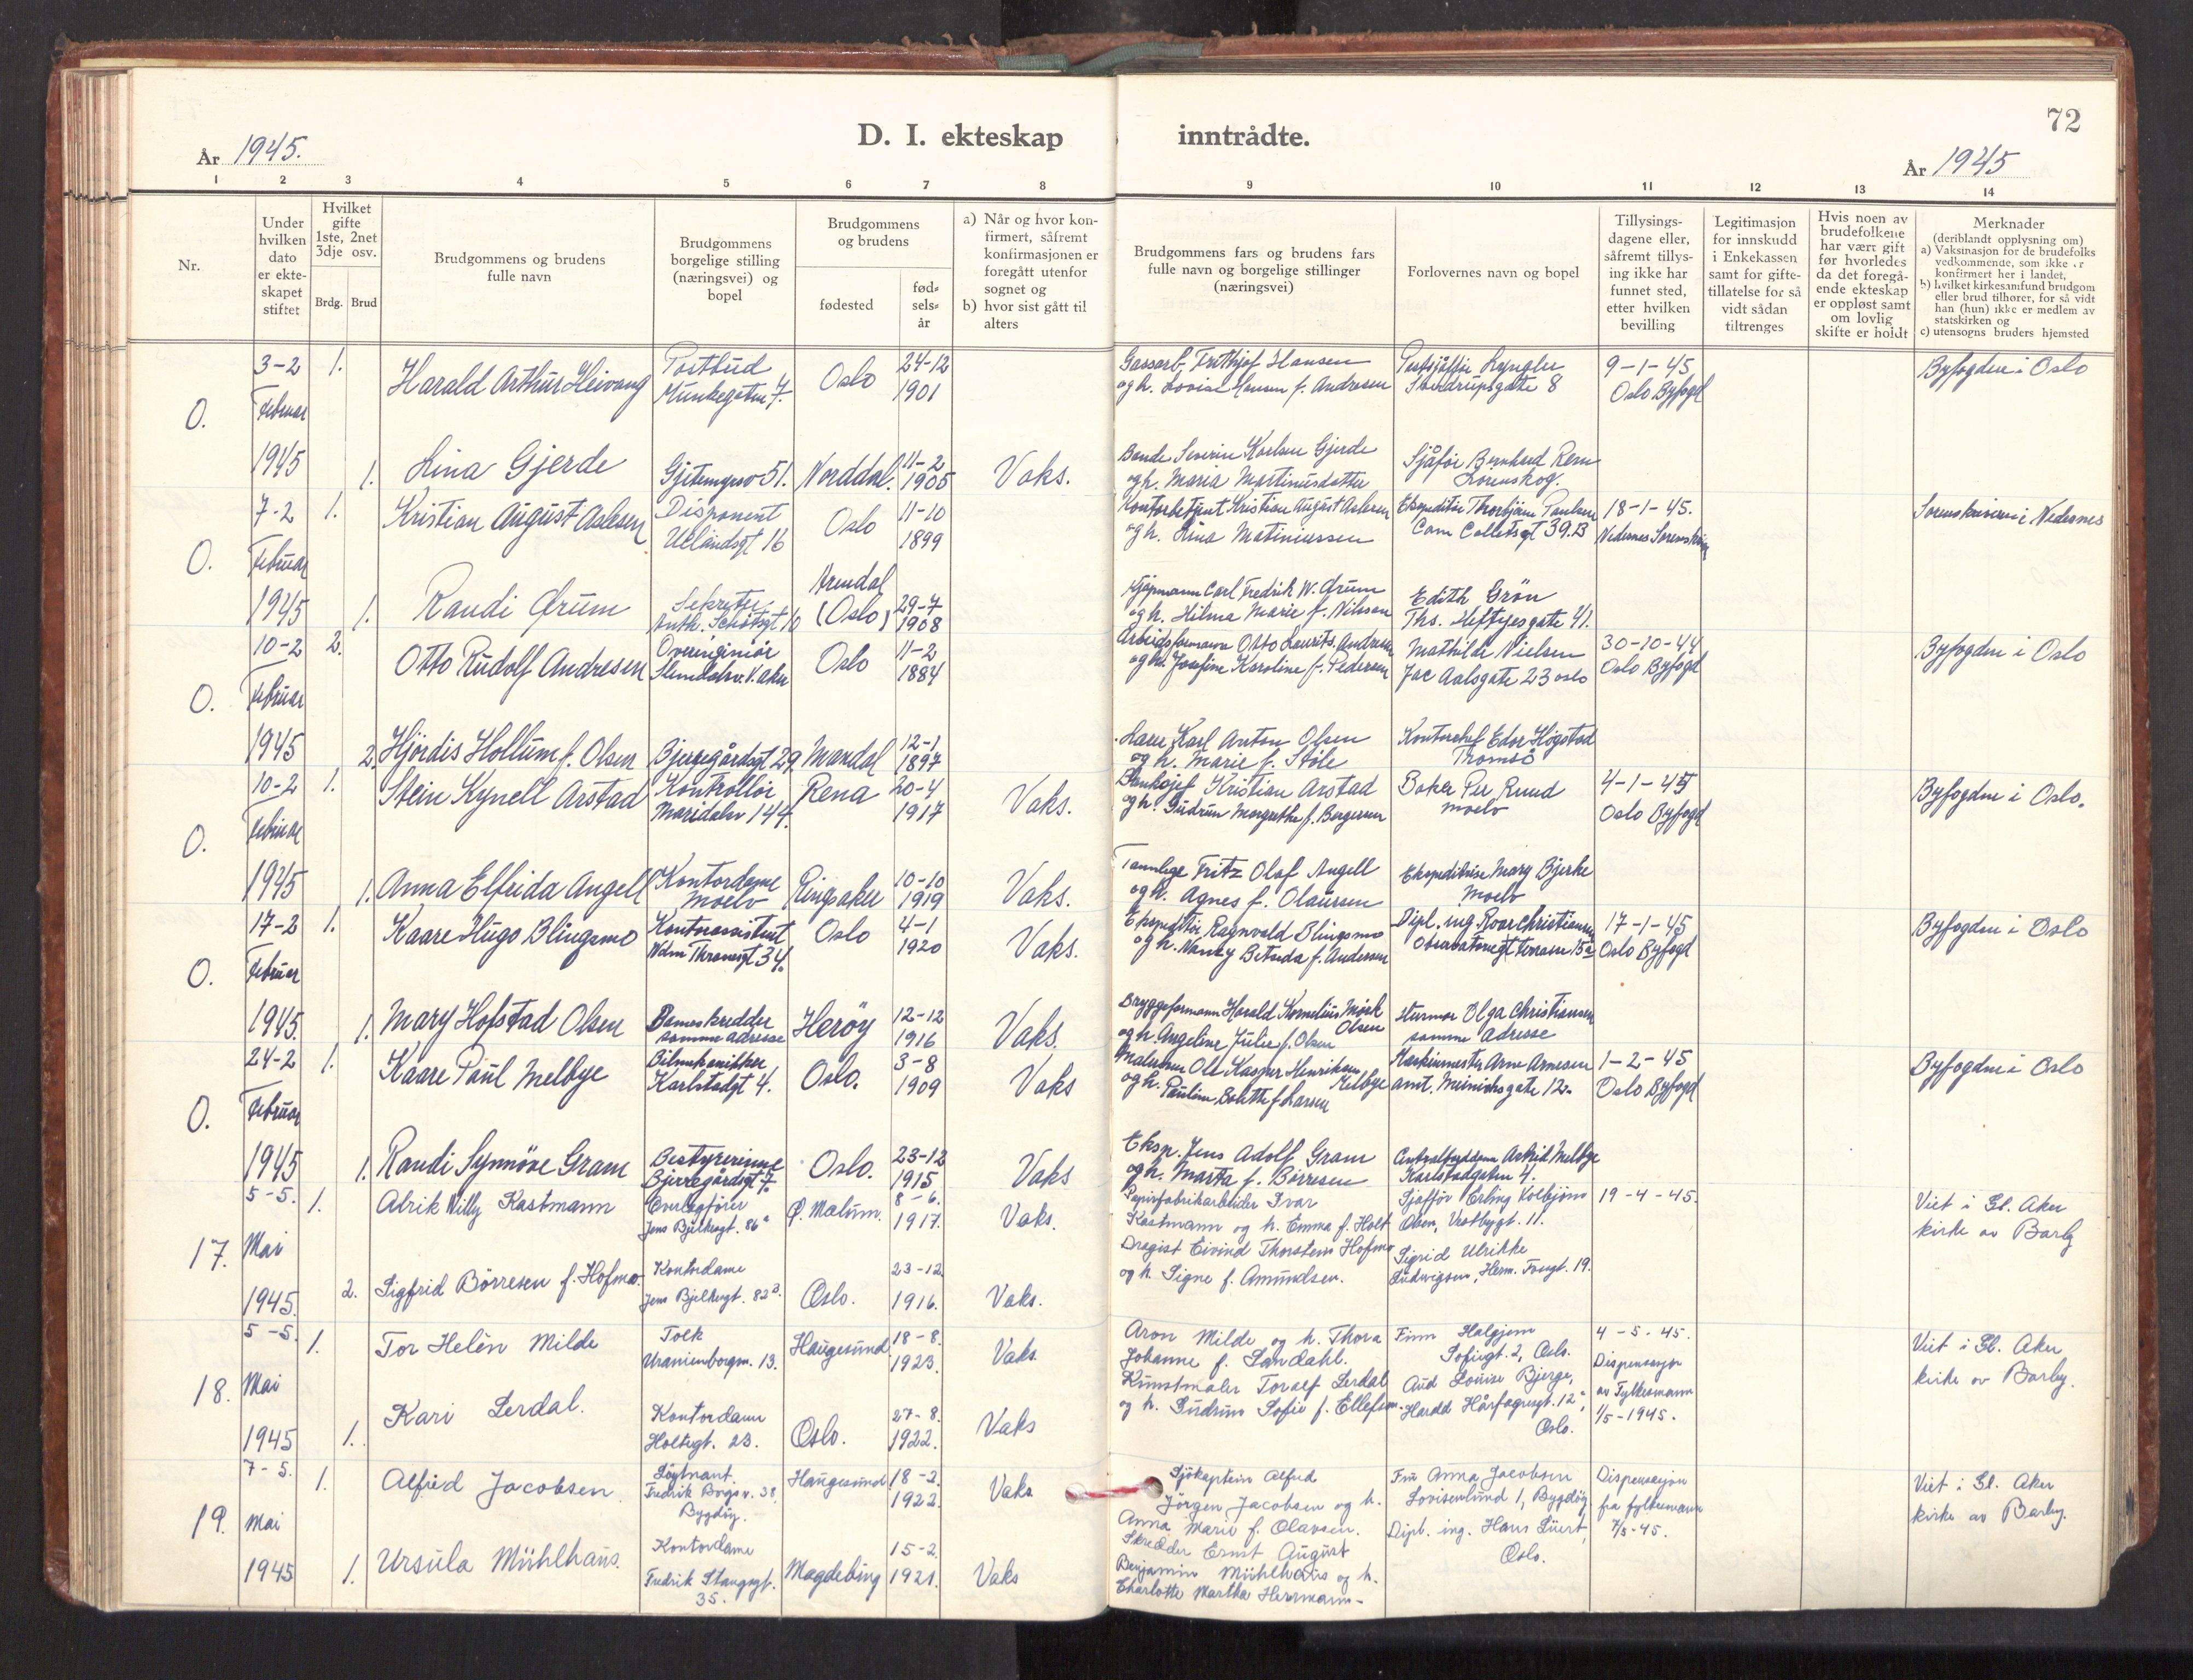 72
D. I. ekteskap inntrådte.
År 1945.
År 1945
1 2 3 4 5 6 7 8 9 10 11 12 13 14
Nr.
Under hvilken dato er ekteskapet stiftet
Hvilket gifte 1ste, 2net 3dje osv.
Brdg. Brud
Brudgommens og brudens fulle navn
Brudgommens borgelige stilling (næringsvei) og bopel
Brudgommens og brudens
fødested
fødselsår
a) Når og hvor konfirmert, såfremt konfirmasjonen er foregått utenfor sognet og
b) hvor sist gått til alters
Brudgommens fars og brudens fars fulle navn og borgelige stillinger (næringsvei)
Forlovernes navn og bopel
Tillysingsdagene eller, såfremt tillysing ikke har funnet sted, etter hvilken bevilling
Legitimasjon for innskudd i Enkekassen samt for giftetillatelse for så vidt sådan tiltrenges
Hvis noen av brudefolkene har vært gift før hvorledes da det foregående ekteskap er oppløst samt om lovlig skifte er holdt
Merknader
(deriblandt opplysning om)
a) Vaksinasjon for de brudefolks vedkommende, som ikke er konfirmert her i landet,
b) hvilket kirkesamfund brudgom eller brud tilhører, for så vidt han (hun) ikke er medlem av statskirken og
c) utensogns bruders hjemsted
O.
3-2 Februar 1945
1.
Harald Arthur Heivang
Postbud
Munkegaten 7.
Oslo
24-12
1901
Gassarb. Frithjof Hansen
og h. Lovise Hansen f. Andresen
Sverdrupsgate 8
9-1-45
Oslo Byfogd
Byfogden i Oslo
1. Lina Gjerde
51.
Norddal.
11-2
1905
Vaks.
Bonde Severin Karlsen Gjerde
og h. Maria Martinusdatter
Sjåfør Bernhard Rem
Lørenskog.
O.
7-2 Februar 1945
1.
Kristian August Aslesen
Disponent
Uelandsgt 16
Oslo
11-10
1899
Kontorbetjent Kristian August Aslesen
og h. Lina Matiniussen
Ekspeditør Thorbjørn Paulsen
Cam Colletsgt 39.B
18-1-45.
Nedernes Sorenskriver
Sorenskriveren i Nedernes
1. Randi Ørum
Sekretær
Anth. Schøtsgt 10
Arendal
(Oslo)
29-7
1908
Kjøpmann Carl Fredrik W. Ørum
og h. Hilma Marie f. Nilsson
Edith Grön
Ths. Heftyesgate 41.
O.
10-2 Februar 1945
2.
Otto Rudolf Andresen
Overingeniør
V. aker
Oslo
11-2
1884
Arbeidsformann Otto Laurits Andresen
og h. Josefine Karoline f. Pedersen
Mathilde Nielsen
Jac Aalsgate 23 Oslo
30-10-44
Oslo Byfogd
Byfogden i Oslo
2. Hjördis Hollum f. Olsen
Bjerregårdsgt 29.
Mandal
12-1
1897
Karl Anton Olsen
og h. Marie f. Støle
Kontorchef Edor Høgstad
Tromsö
O.
10-2 Februar 1945
1.
Stein Kynell Arstad
Kontrollör
Maridalsv 144.
Rena
20-4
1917
Vaks.
Banksjef Kristian Arstad
og h. Gudrun Margrethe f. Bergersen
Baker Per Ruud
Moelv
4-1-45
Oslo Byfogd
Byfogden i Oslo.
1. Anna Elfrida Angell
Kontordame
Moelv
Ringsaker
10-10
1919
Vaks.
Tannlege Fritz Olaf Angell
og h. Agnes f. Olaussen
Ekspeditrise Mary Bjerke
Moelv
O.
17-2 Februar 1945.
1.
Kaare Hugo Blingsmo
Kontorassistent
Wdm Thranesgt 34.
Oslo
4-1
1920
Vaks.
Ekspeditör Ragnvald Blingsmo
og h. Nancy Betuda f. Andersen
Dipl. ing. Roar Christiansen
Observatoriegt terrasse 15a
17-1-45
Oslo Byfogd
Byfogden i Oslo
1. Mary Hofstad Olsen
Dameskredder
samme adresse
Herøy
12-12
1916
Vaks.
Bryggeformann Harald Kornelius Mork Olsen
og h. Angeline Julie f. Olsen
Olga Christiansen
samme adresse
O.
24-2 Februar 1945
1.
Kaare Paul Melbye
Bilmekanikker
Karlstadgt 4.
Oslo.
3-8
1909
Vaks
Malerm. Ole Kasper Henriksen Melbye
og h. Pauline Bolette f. Larsen
Maskinmester Arne Arnesen
amt. Meinichsgate 12.
1-2-45
Oslo Byfogd
Byfogden i Oslo
1. Randi Synnöve Gram
Bestyrerinne
Bjerregårdsgt 7.
Oslo.
23-12
1915
Vaks
Eksp. Jens Adolf Gram
og h. Marta f. Börresen
Astrid Melbye
Karlstadgaten 4.
17.
5-5. Mai 1945.
1.
Alrik Willy Kastmann
Overlagfører
Jens Bjelkesgt. 86a
Ø. Malum.
8-6.
1917.
Vaks.
Papirfabrikarbeider Ivar
Kastmann og h. Emma f. Holt
Sjåffør Erling Kolbjörn
Olsen, Vestbygt. 11.
19-4-45.
Viet i Gl. Aker
kirke av Barly
2. Sigfrid Börresen f. Hofmo.
Kontordame
Jens Bjelkesgt. 82B.
Oslo.
23-12.
1916.
Vaks.
Drogist Eivind Thorstein Hofmo
og h. Signe f. Amundsen.
Sigrid Ulrikke
Ludvigsen, Herm. Foss gt. 19.
18.
5-5. Mai 1945
1.
Tor Helén Milde
Tolk
Uranienborgv. 13.
Haugesund
18-8.
1923.
Vaks.
Aron Milde og h. Thora
Johanne f. Sandahl.
Finn Halgjem
Sofiegt. 2, Oslo.
4-5-45.
Dispensasjon
av Fylkesmann
1/5-1945.
Viet i Gl. Aker
kirke av Barly.
1. Kari Lerdal.
Kontordame
Holtegt. 23.
Oslo.
27-8.
1922.
Vaks
Kunstmaler Toralf Lerdal
og h. Gudrun Sofie f. Ellefsen.
Aud Louise Bjerge,
Harald Hårfagresgt. 12a,
Oslo.
19.
7-5. Mai 1945
1.
Alfred Jacobsen.
Löytnant.
Fredrik Bogsv. 38,
Bygdøy.
Haugesund
18-2.
1922.
Vaks
Sjökaptein Alfred
Jörgen Jacobsen og h.
Anna Marie f. Olavsen.
Fru Anna Jacobsen
Lovisenlund 1, Bygdöy.
Dispensasjon
fra fylkesmann
7/5-45.
Viet i Gl. Aker
kirke av Barly.
1. Ursula Mühlhaus.
Kontordame
Fredrik Stangsgt.
35.
Magdeburg
15-2.
1921.
Vaks
Skredder Ernst August
Benjamin Mühlhaus og h.
Charlotte Martha Herrmann-
Dipl. ing. Hans Lüert,
Oslo.